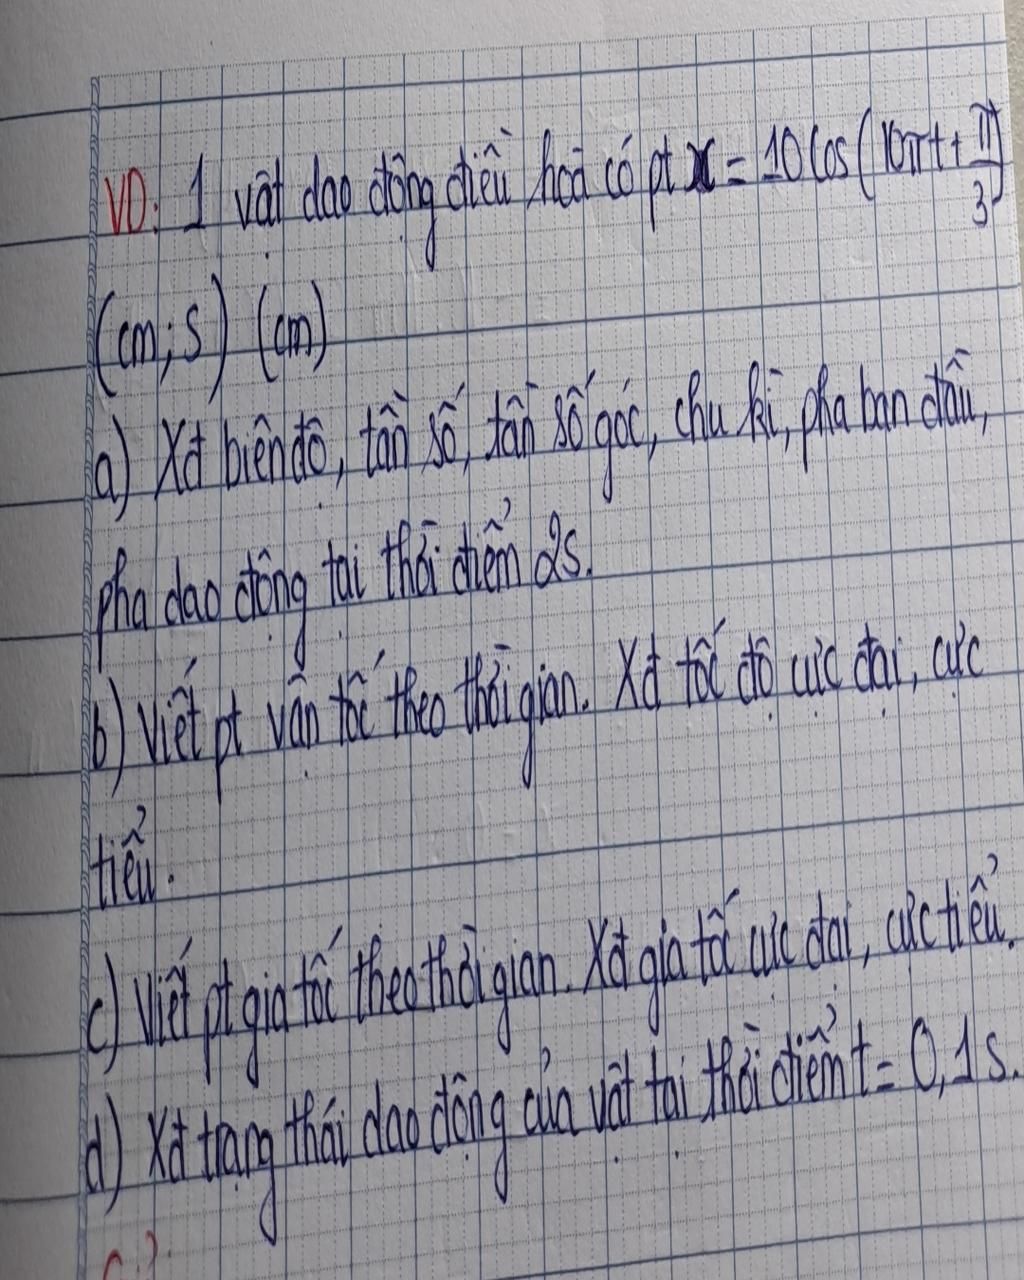 VD: 1 vật dao động điều hoà có pt x = 10cos(10πt + π/3)
(cm; s) (cm)
a) Xđ biên độ, tần số, tần số góc, chu kì, pha ban đầu,
pha dao động tại thời điểm 2s.
b) Viết pt vận tốc theo thời gian. Xđ tốc độ cực đại, cực
tiểu.
c) Viết pt gia tốc theo thời gian. Xđ gia tốc cực đại, cực tiểu.
d) Xđ trạng thái dao động của vật tại thời điểm t = 0,1s.